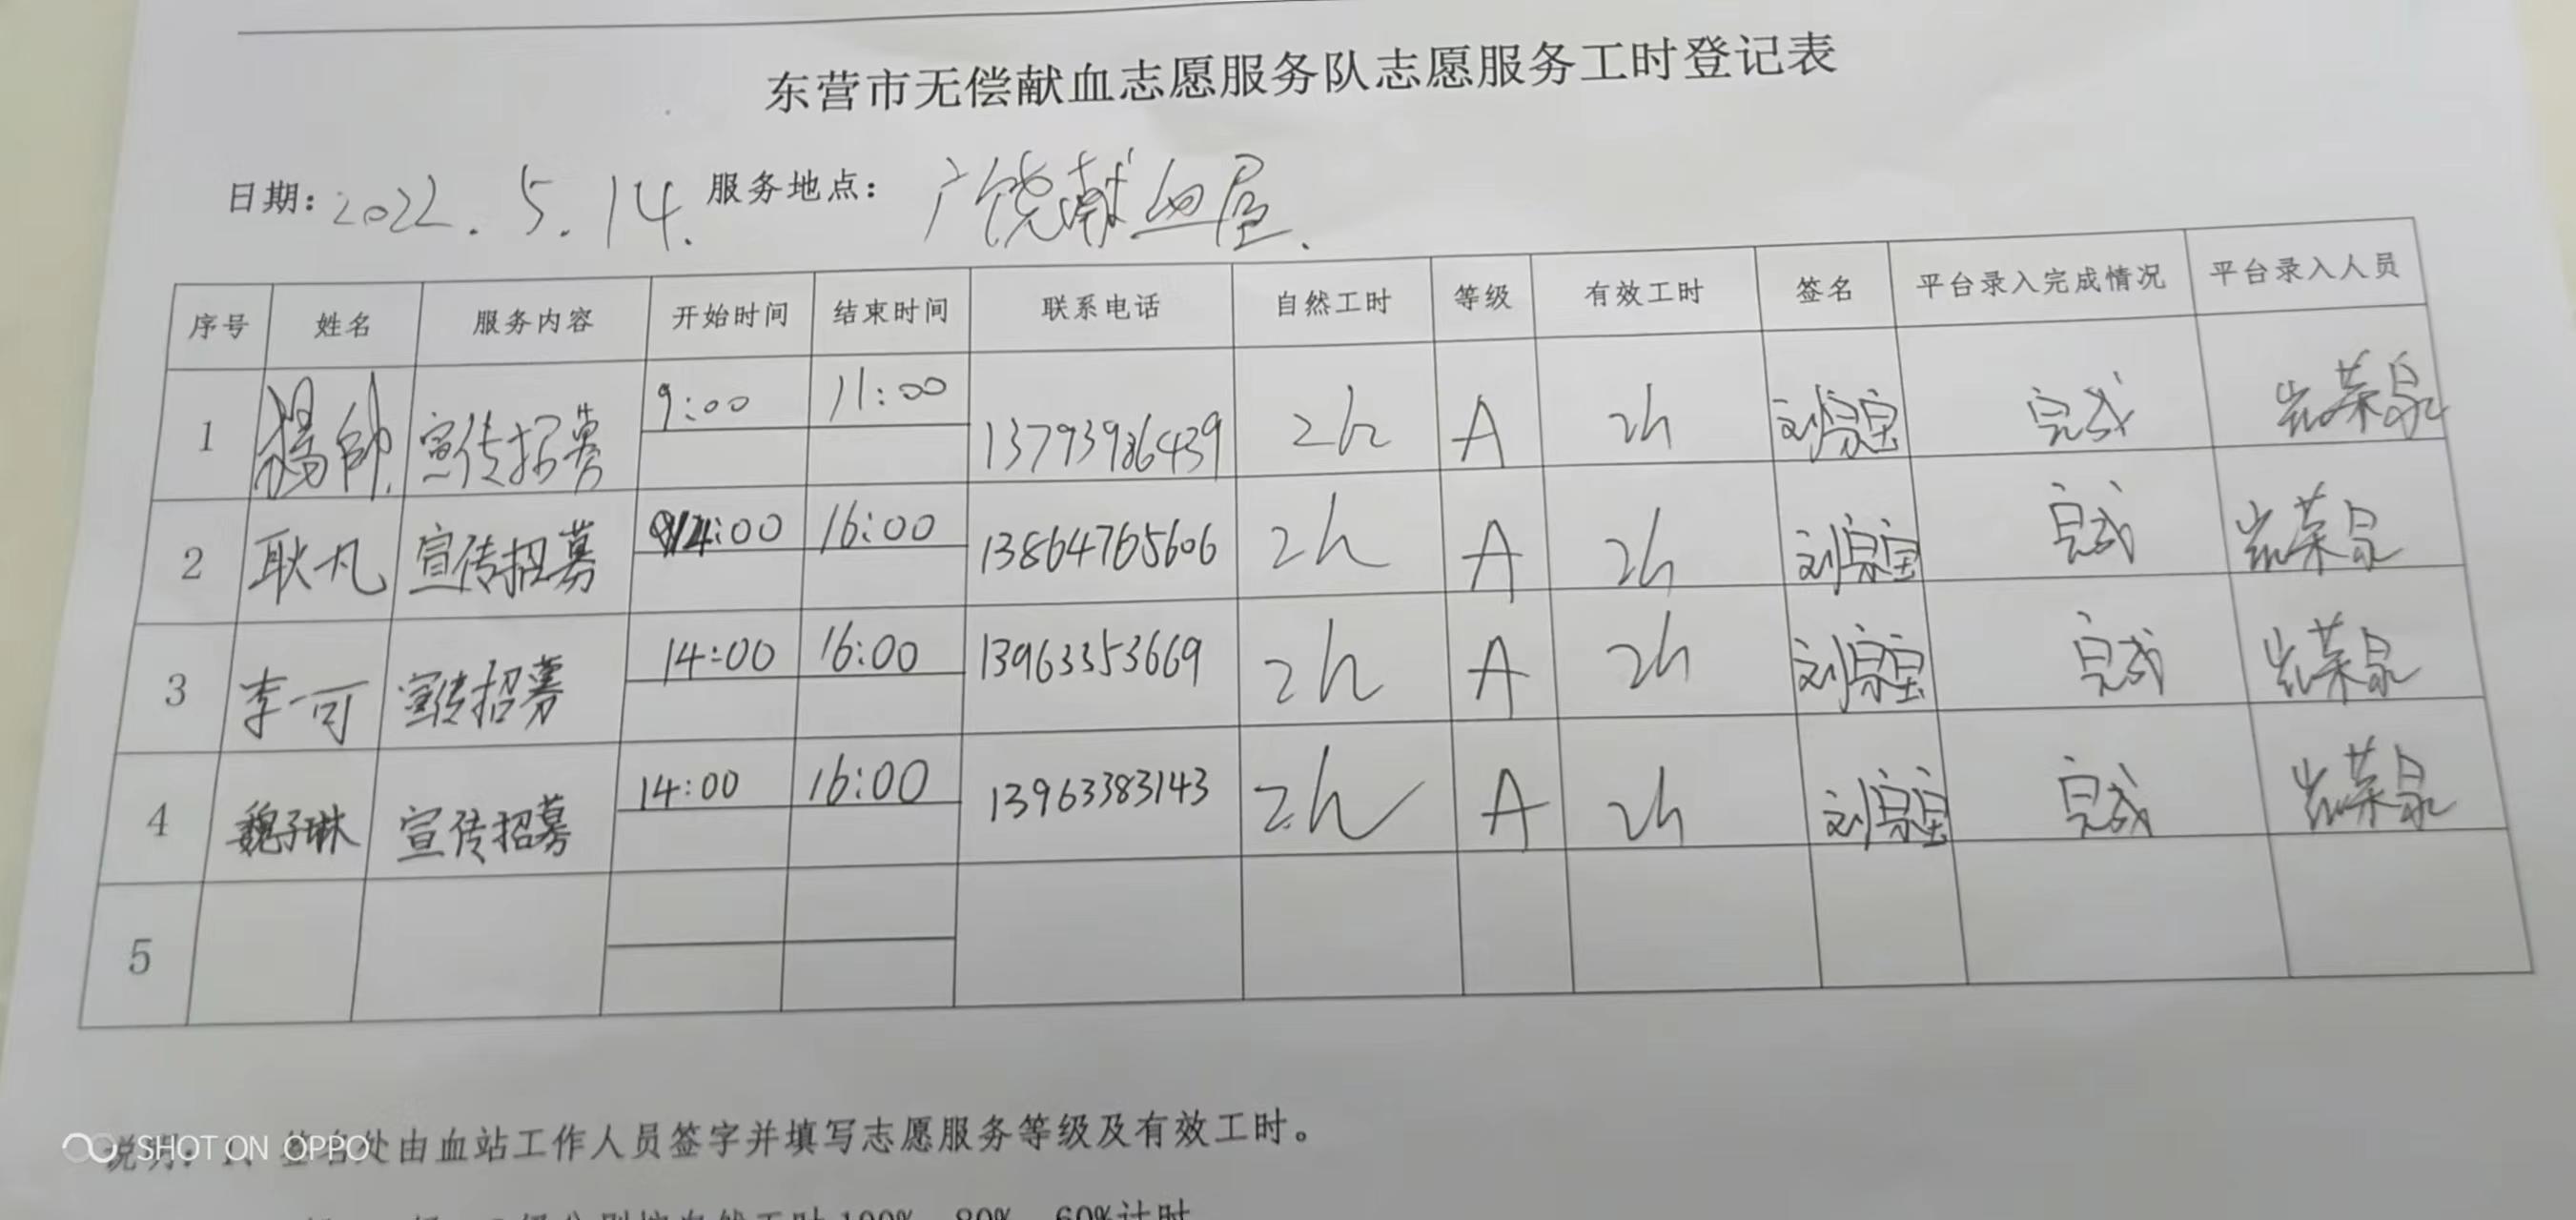 东营市无偿献血志愿服务队志愿服务工时登记表
日期: 2022.5.14. 服务地点: 广饶献血屋.
序号 姓名 服务内容 开始时间 结束时间 联系电话 自然工时 等级 有效工时 签名 平台录入完成情况 平台录入人员
1 杨帅 宣传招募 9:00 11:00 13793986439 2h A 2h 刘宗宝 完成 荣泉
2 耿凡 宣传招募 14:00 16:00 13864765606 2h A 2h 刘宗宝 完成 荣泉
3 李一可 宣传招募 14:00 16:00 13963353669 2h A 2h 刘宗宝 完成 荣泉
4 魏子琳 宣传招募 14:00 16:00 13963383143 2h A 2h 刘宗宝 完成 荣泉
5
说明: 1、签名处由血站工作人员签字并填写志愿服务等级及有效工时。
SHOT ON OPPO
级分别按自然工时100%、80%、60%计时